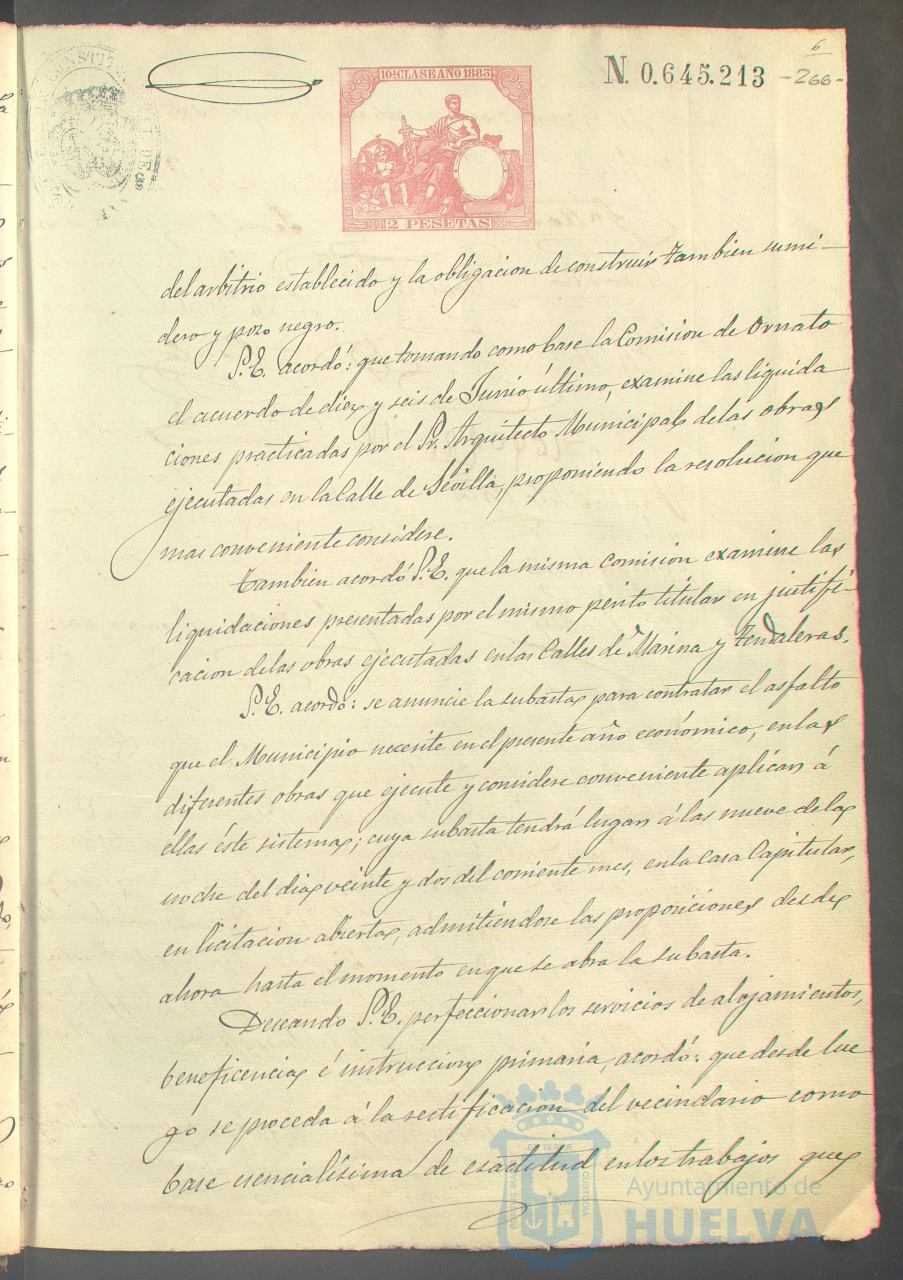 6
10ª CLASE AÑO 1883
N. 0.645.213
-266-
2 PESETAS
del arbitrio establecido y la obligacion de construir tambien sumi-
dero y pozo negro.
S.E. acordó: que tomando como base la Comision de Ornato
el acuerdo de diez y seis de Junio último, examine las liquida
ciones practicadas por el Sr. Arquitecto Municipal de las obras
ejecutadas en la Calle de Sevilla, proponiendo la resolucion que
mas conveniente considere.
Tambien acordó S.E. que la misma Comision examine las
liquidaciones presentadas por el mismo perito titular en justifi-
cacion de las obras ejecutadas en las Calles de Marina y Tendaleras.
S.E. acordó: se anuncie la subasta para contratar el asfalto
que el Municipio necesite en el presente año económico, en las
diferentes obras que ejecute y considere conveniente aplicar á
ellas éste sistema; cuya subasta tendrá lugar á las nueve de la
noche del dia veinte y dos del corriente mes, en la Casa Capitular,
en licitacion abierta, admitiendose las proposiciones desde
ahora hasta el momento en que se abra la subasta.
Deseando S.E. perfeccionar los servicios de alojamientos,
beneficencia é instruccion primaria, acordó: que desde lue
go se proceda á la rectificacion del vecindario como
base esencialísima de exactitud en los trabajos que
Ayuntamiento de
HUELVA